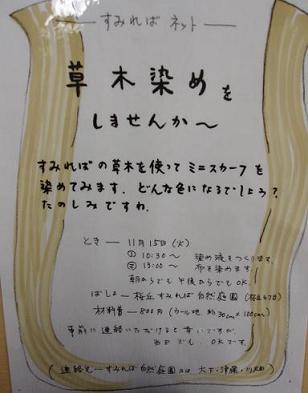 すみればネット
草木染めを
しませんか〜
すみればの草木を使ってミニスカーフを
染めてみます. どんな色になるでしょう?
たのしみですね.
とき — 11月15日(火)
① 10:30〜 染め液をつくります
② 13:00〜 布を染めます
朝からでも午後からでもOK
ばしょ — 桜丘すみれば自然庭園
材料費 — 800円 (ウール地 約30cm×100cm)
事前に連絡いただけると幸いですが,
当日でも OKです.
(連絡先 — すみれば自然庭園